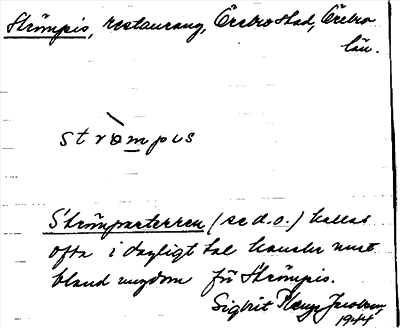 Strömpis, restaurang, Örebro stad, Örebro
län.
strömpis
Strömparterren (se d.o.) kallas
ofta i dagligt tal kanske mest
bland ungdom för Strömpis.
Sigbrit Plenge Jacobson,
1944